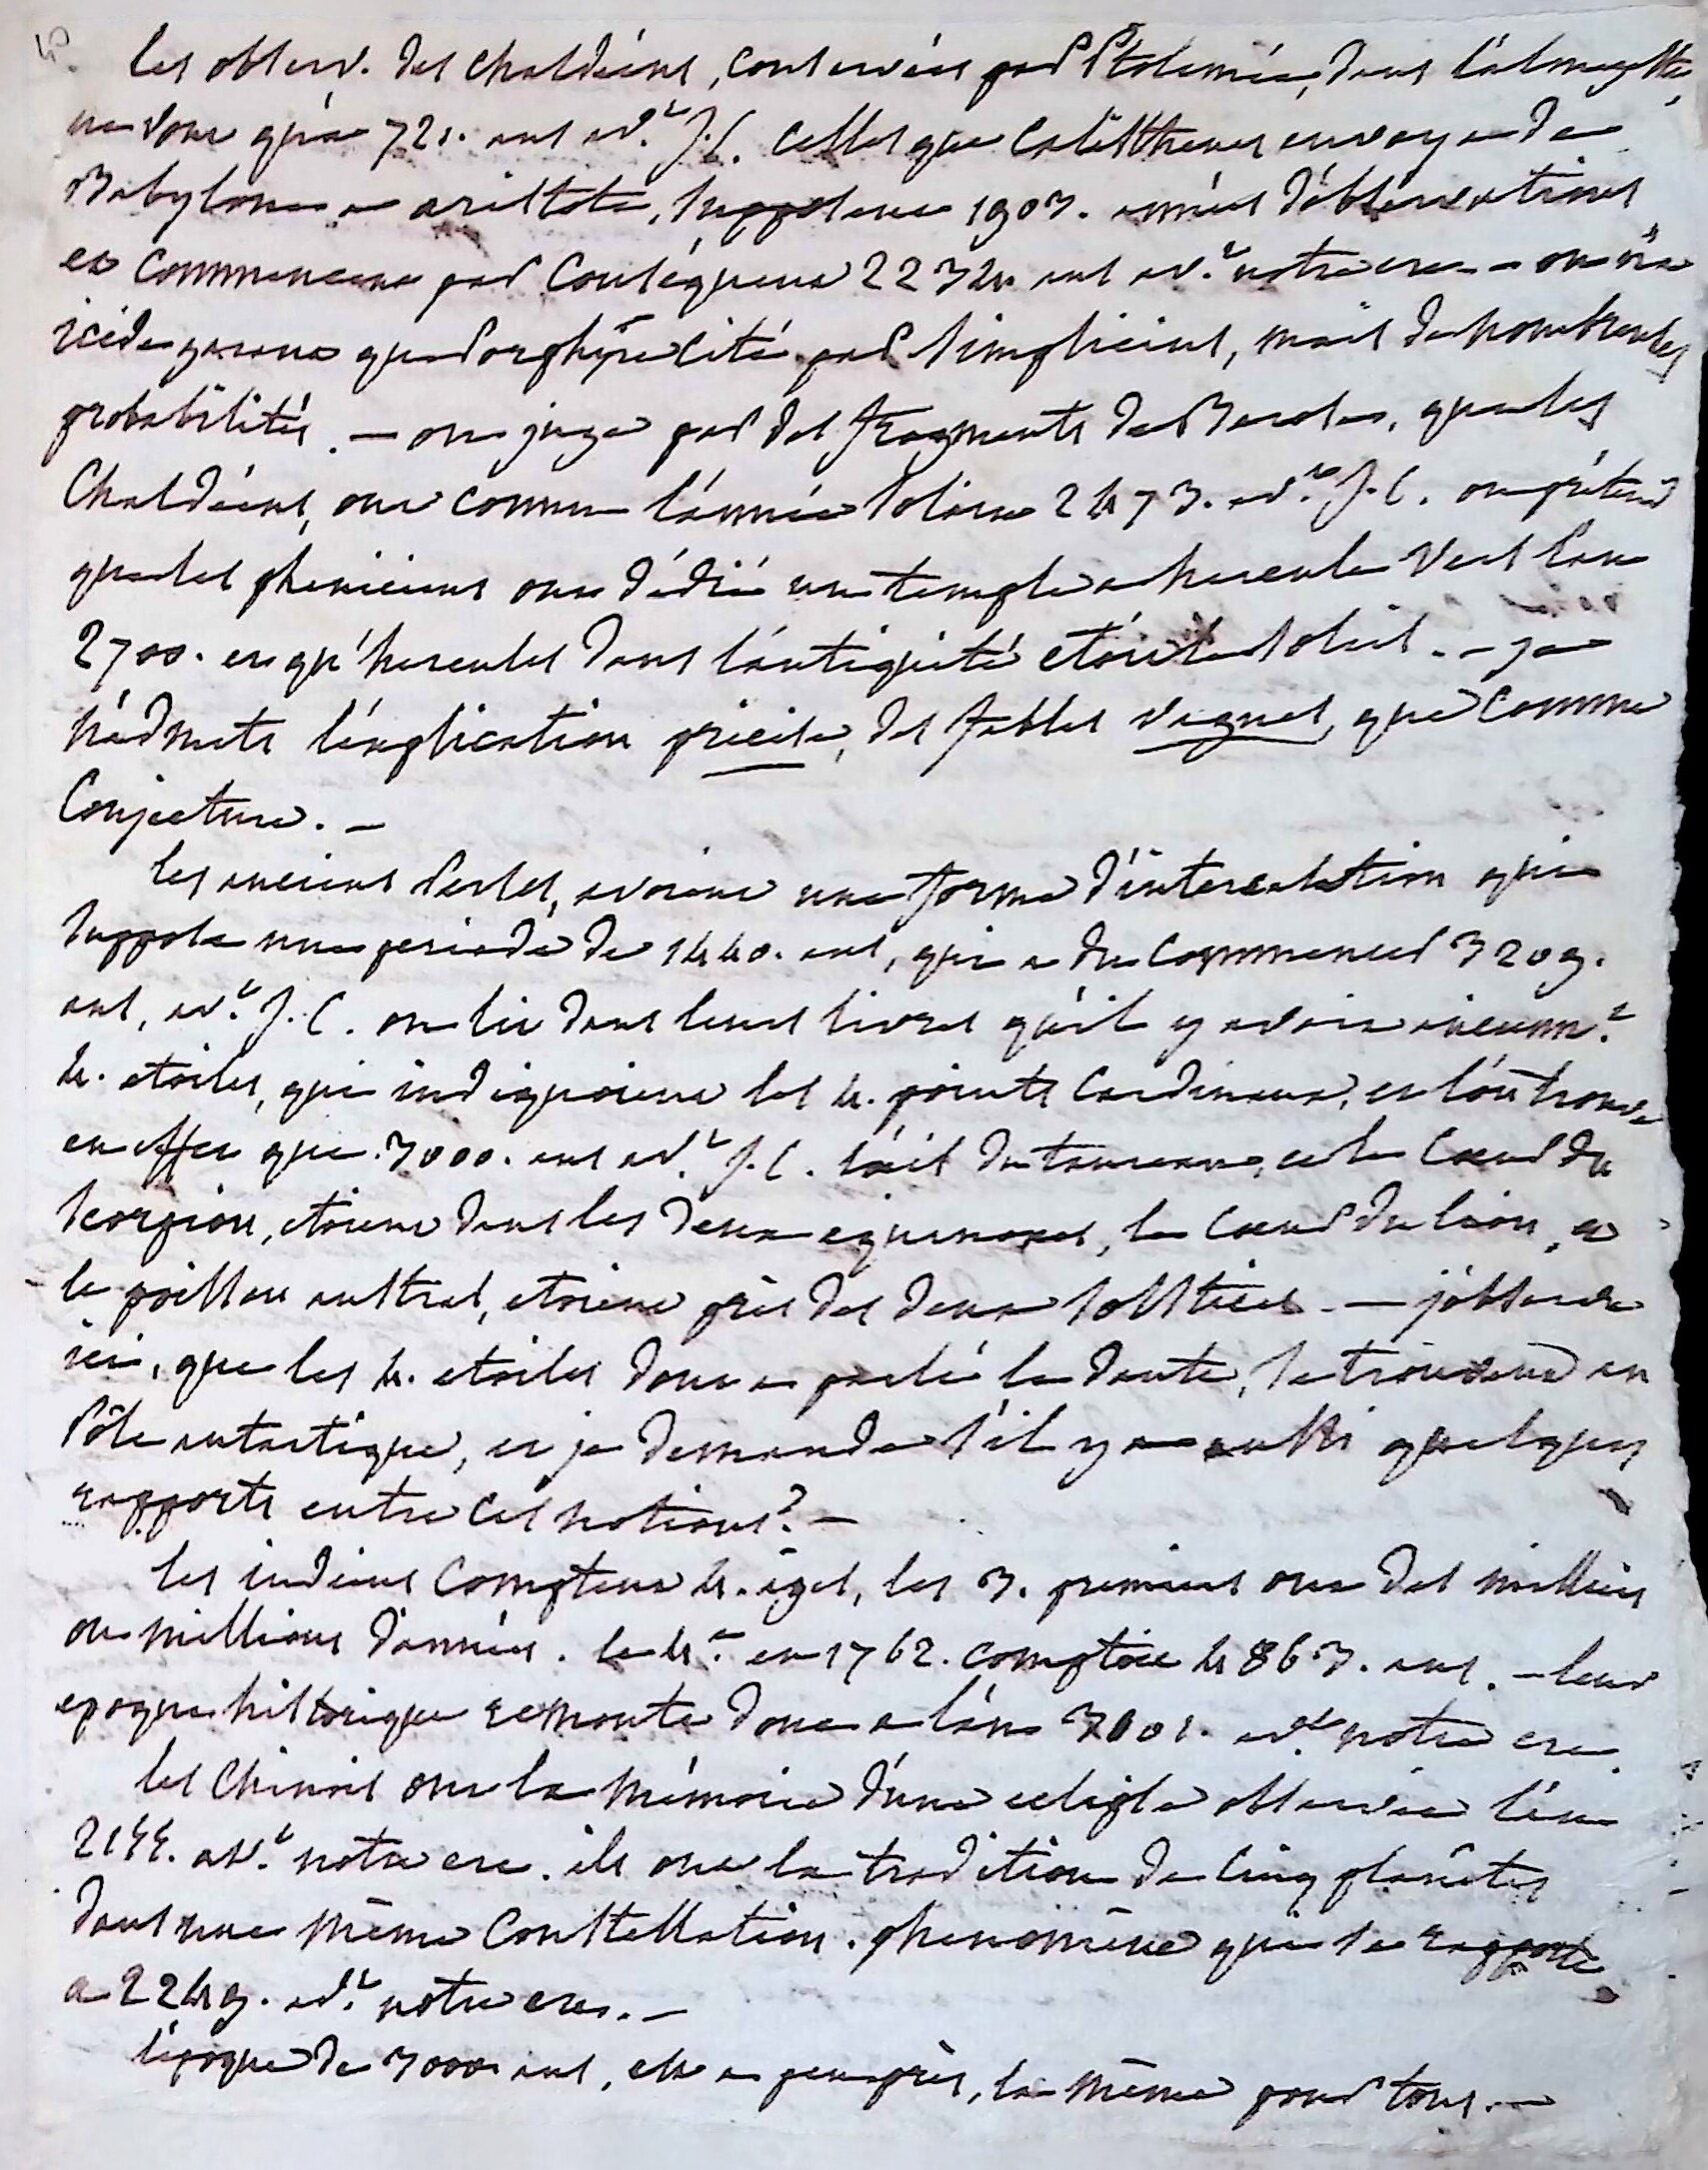 les observ. des chaldéens, conservées par Ptolemée, dans l'almageste,
ne vont qu'a 721. ans av.t J.C. celles que Calisthenes envoya de
Babylone a aristote, supposent 1903. années d'observations
et commencent par conséquent 2234 ans av.t notre ere. — on n'a
icide garant que Porphyre cité par Simplicius, mais de nombreuses
probabilités. — on juge par des fragments de Berose, que les
Chaldéens, ont connu l'année solaire 2473. av.t J.C. on prétend
que les pheniciens ont dédié un temple a hercule vers l'an
2700. et qu'hercules dans l'antiquité etoit le soleil. — je
n'admets l'explication précise, des fables vagues, que comme
Conjecture. —
les anciens Perses, avoient une forme d'intercalation qui
suppose une periode de 1440. ans, qui a du commencer 3209.
ans, av.t J.C. on lit dans leurs livres qu'il y avoit ancienn.t
4. etoiles, qui indiquoient les 4. points Cardinaux, et l'on trouve
en effet que 3000. ans av.t J.C. l'œil du taureau, et le Cœur du
scorpion, etoient dans les deux equinoxes, le Cœur du lion, et
le poisson austral, etoient près des deux solstices. — j'observe
ici, que les 4. etoiles dont a parlé le dante, se trouvent au
Pôle antartique, et je demande s'il y a aussi quelques
rapports entre ces notions? —
les indiens comptent 4. âges, les 3. premiers ont des milliers
ou millions d'années. le 4.e en 1762. comptoit 4863. ans. — leur
epoque historique remonte donc a l'an 3101. av.t notre ere.
les Chinois ont la mémoire d'une eclipse observée l'an
2155. av.t notre ere. ils ont la tradition de cinq planêtes
dans une même Constellation. phenomêne qui se rapporte
a 2449. av.t notre ere. —
l'époque de 3000 ans, est a peu près, la même pour tous. —